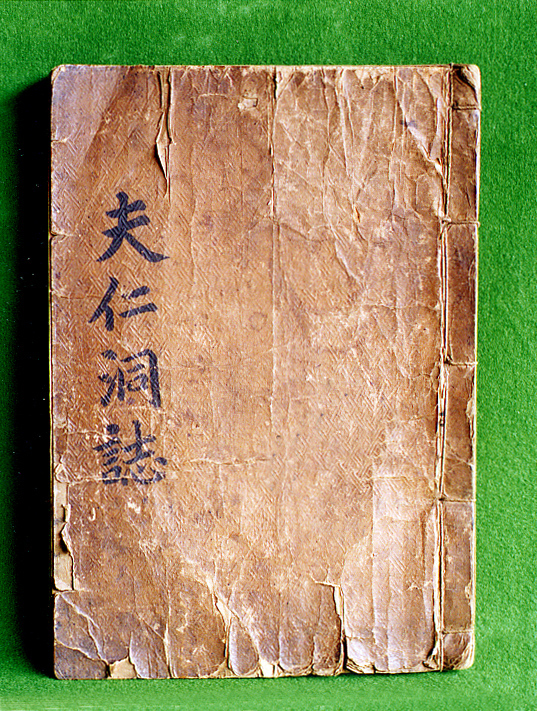 夫仁洞誌